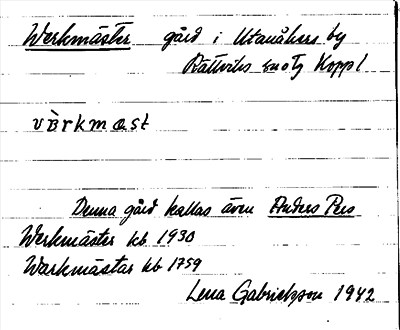 Werkmäster gård i Utanåkers by
Rättviks sn otg Koppl
värkmæst
Denna gård kallas även Anders Pers
Werkmäster kb 1930
Warkmästar kb 1759
Lena Gabrielsson 1942